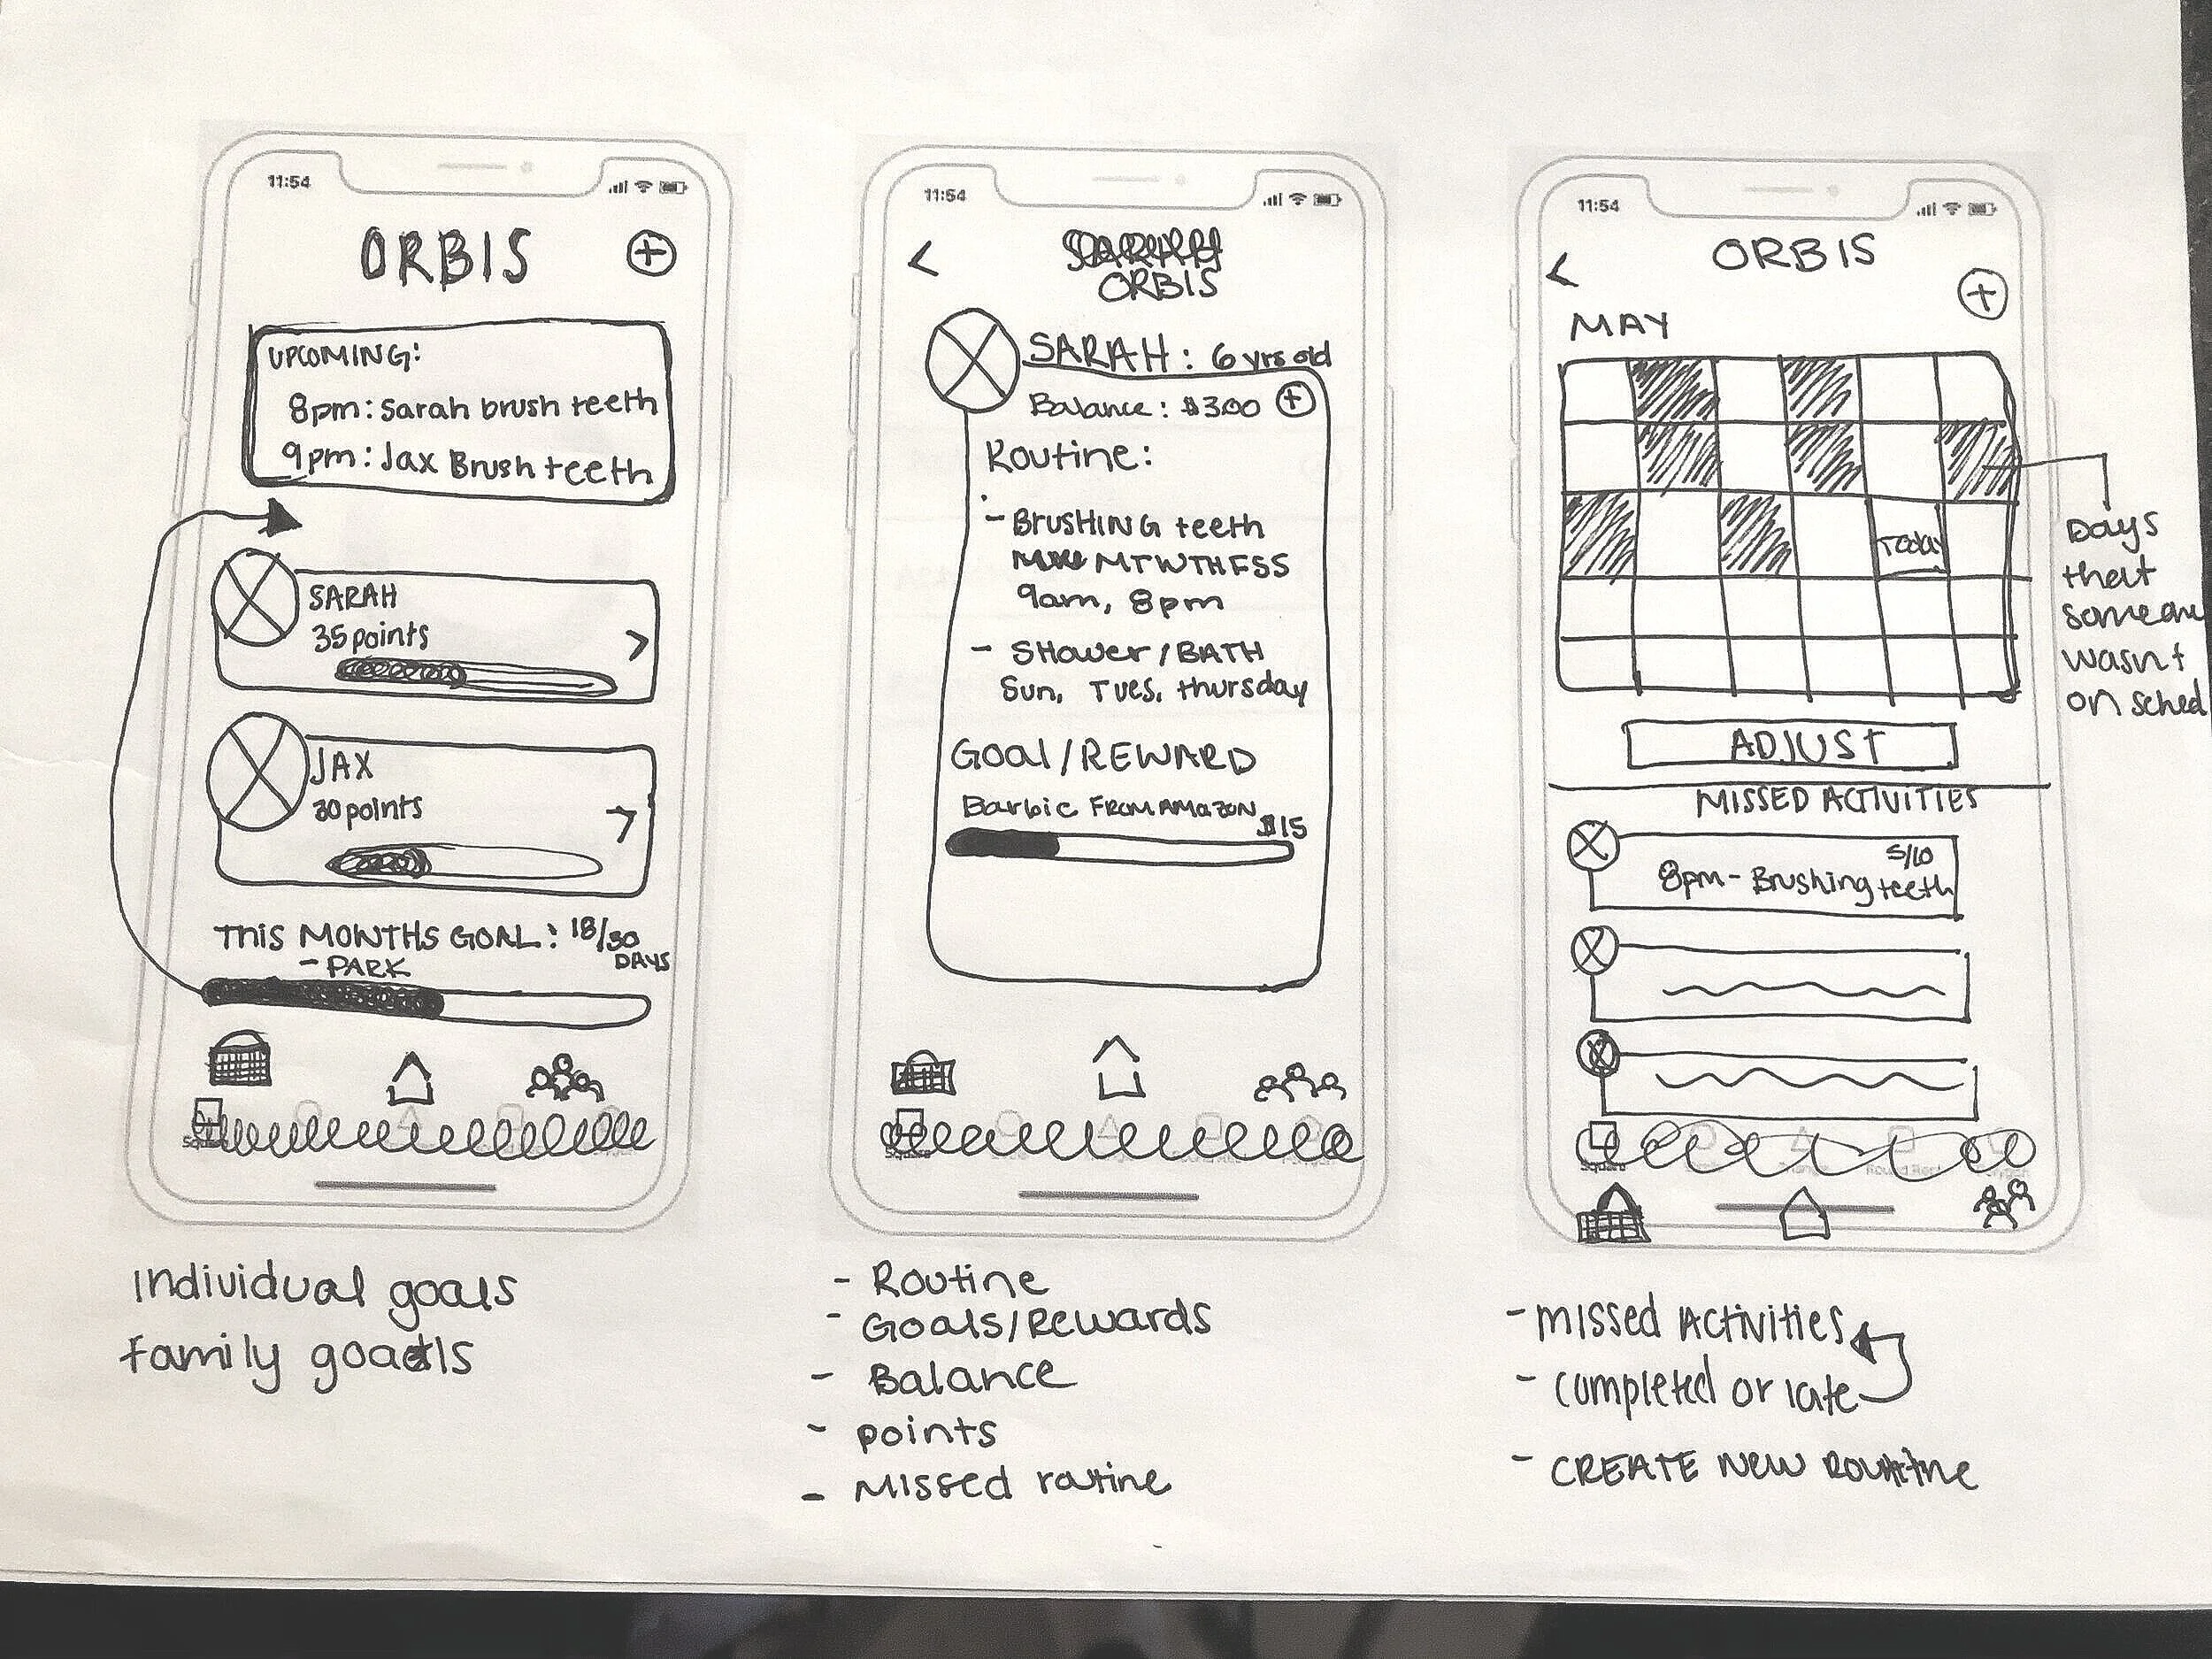 11:54
ORBIS
UPCOMING:
8pm: Sarah brush teeth
9pm: Jax Brush teeth
SARAH
35 points
JAX
30 points
THIS MONTHS GOAL: 18/30
DAYS
- PARK
Individual goals
family goals
11:54
ORBIS
SARAH: 6 yrs old
Balance: $3.00
Routine:
- BrusHING teeth
MTWTHFSS
9am, 8pm
- SHower/BATH
Sun, Tues, thursday
Goal/REWARD
Barbie FROM AMAZON
$15
- Routine
- Goals/Rewards
- Balance
- points
- Missed routine
11:54
ORBIS
MAY
Today
Days
that
someone
wasn't
on sched
ADJUST
MISSED ACTIVITIES
5/10
8pm - Brushing teeth
- missed Activities
- completed or late
- CREATE NEW ROUTINE